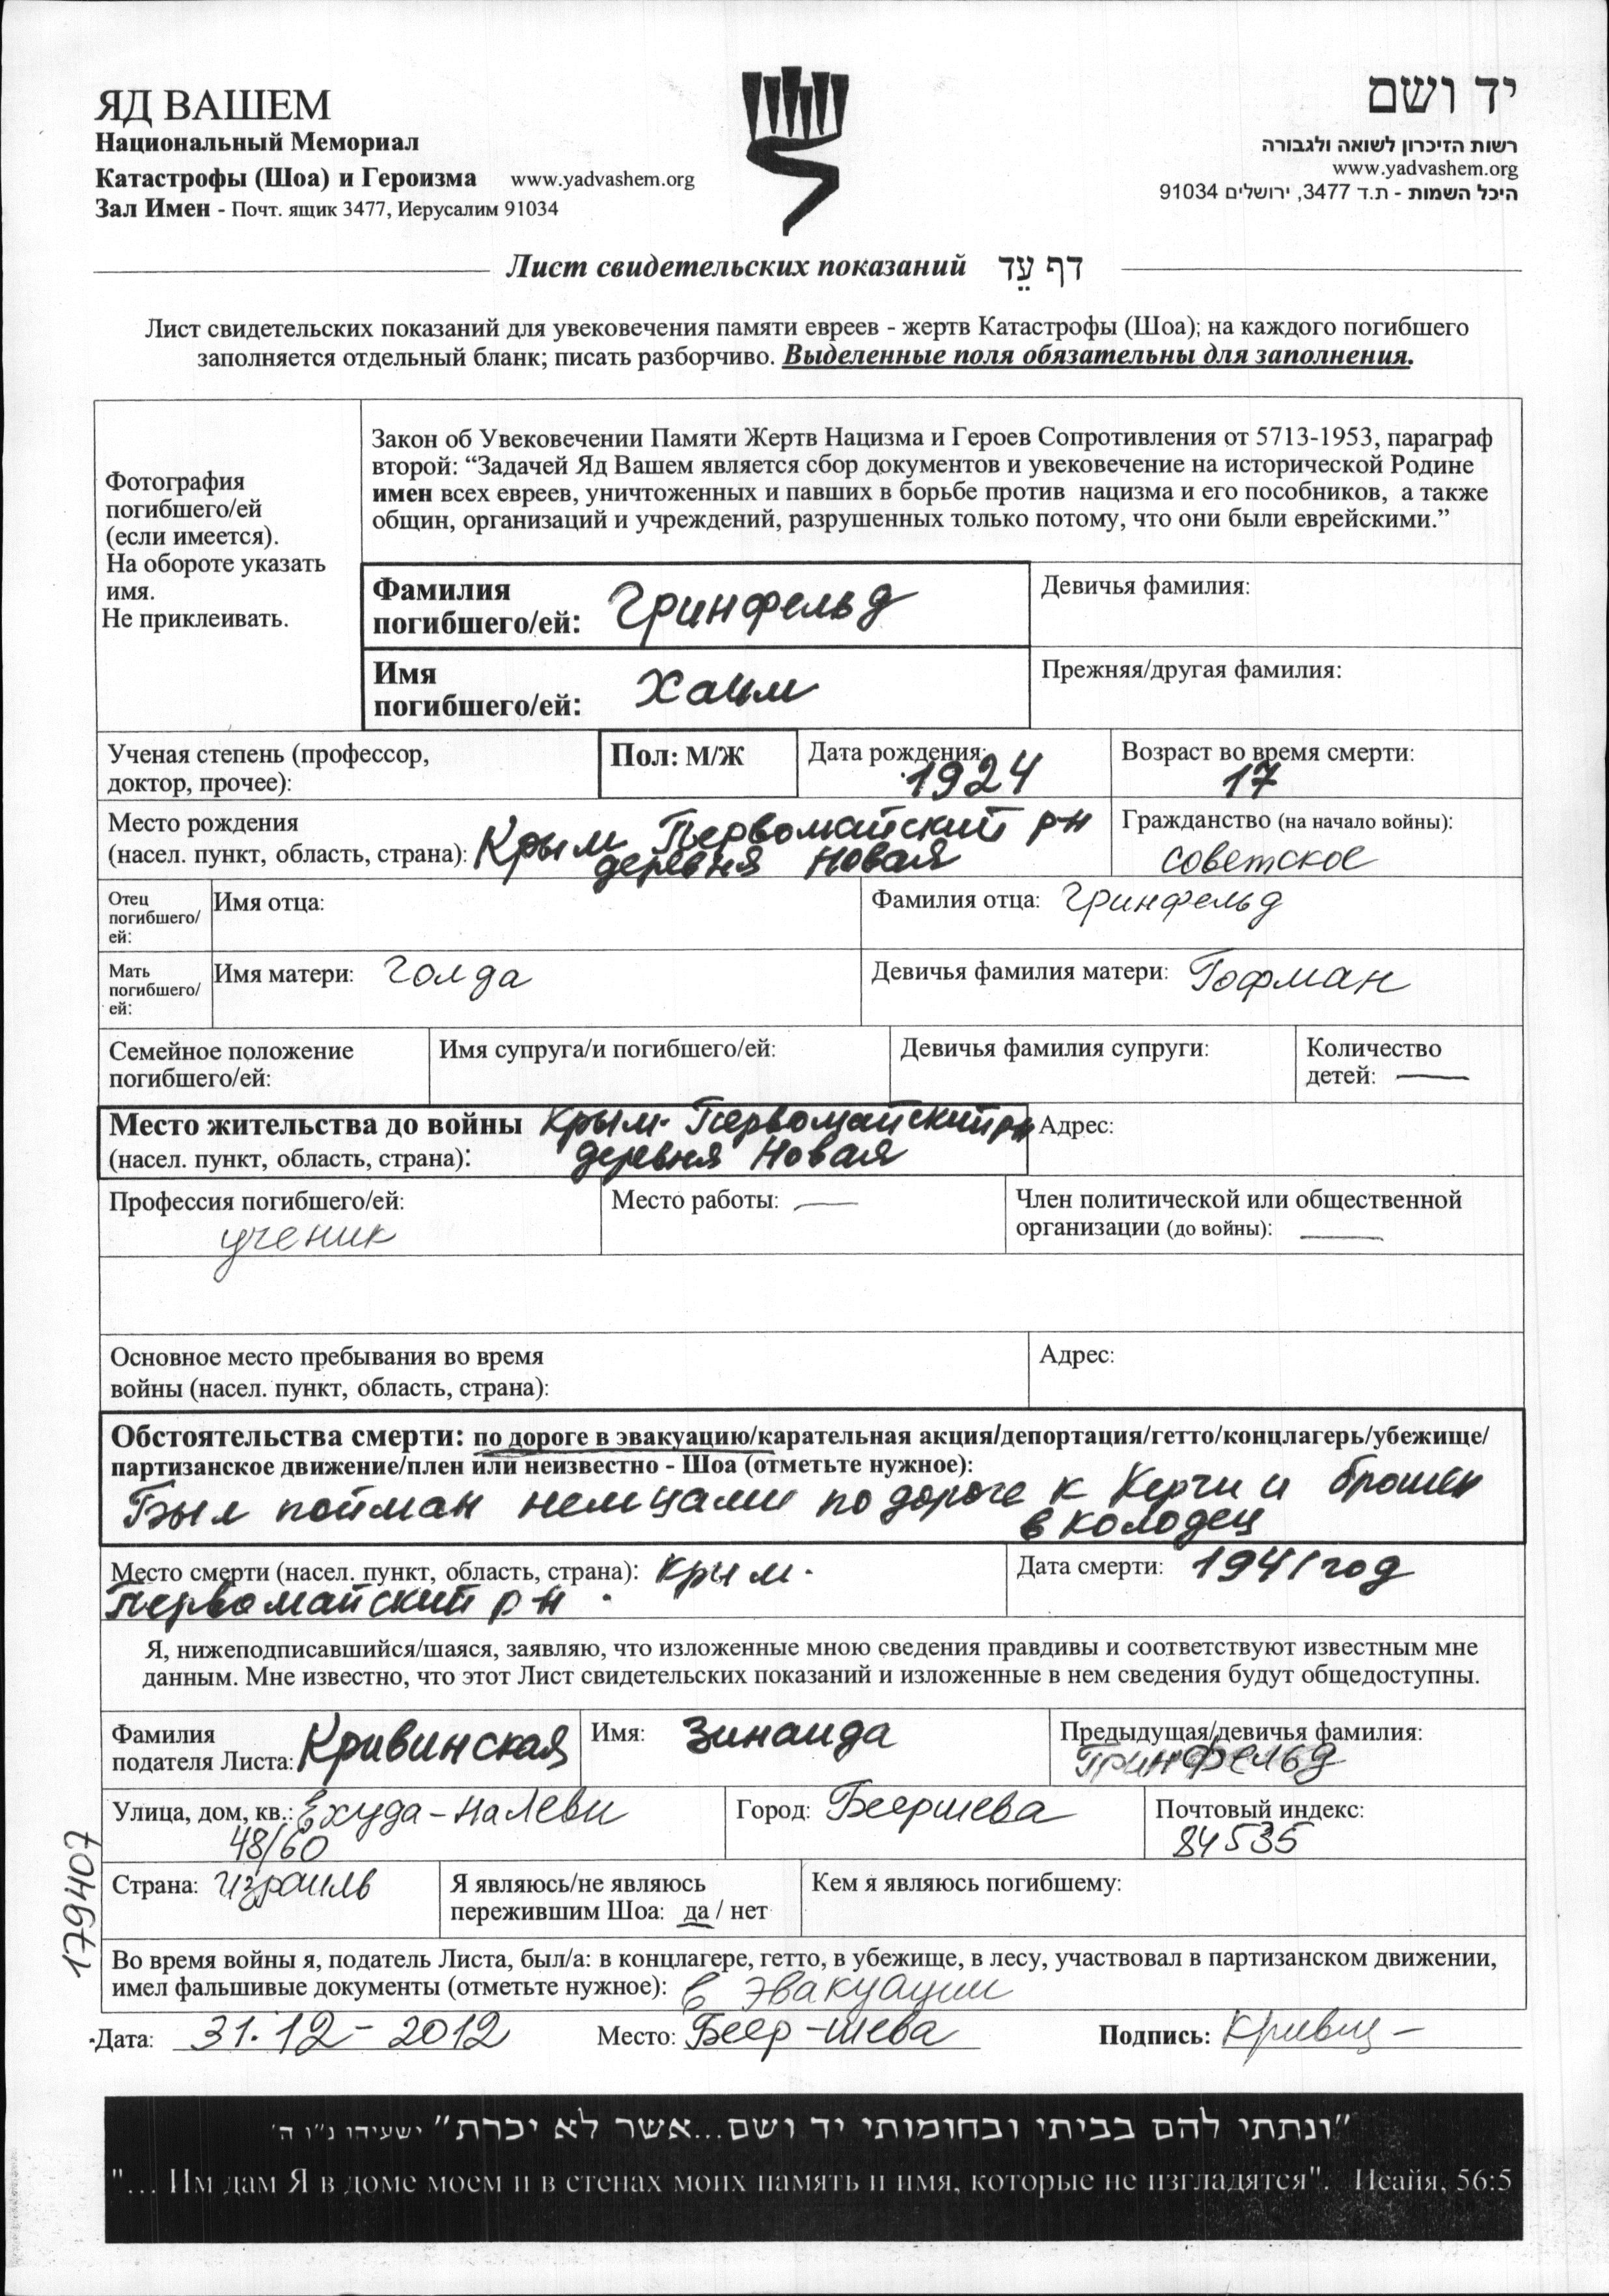 ЯД ВАШЕМ
Национальный Мемориал
Катастрофы (Шоа) и Героизма www.yadvashem.org
Зал Имен - Почт. ящик 3477, Иерусалим 91034
יד ושם
רשות הזיכרון לשואה ולגבורה
www.yadvashem.org
היכל השמות - ת.ד 3477, ירושלים 91034
Лист свидетельских показаний דף עֵד
Лист свидетельских показаний для увековечения памяти евреев - жертв Катастрофы (Шоа); на каждого погибшего
заполняется отдельный бланк; писать разборчиво. Выделенные поля обязательны для заполнения.
Фотография
погибшего/ей
(если имеется).
На обороте указать
имя.
Не приклеивать.
Закон об Увековечении Памяти Жертв Нацизма и Героев Сопротивления от 5713-1953, параграф
второй: “Задачей Яд Вашем является сбор документов и увековечение на исторической Родине
имен всех евреев, уничтоженных и павших в борьбе против нацизма и его пособников, а также
общин, организаций и учреждений, разрушенных только потому, что они были еврейскими.”
Фамилия
погибшего/ей: Гринфельд
Девичья фамилия:
Имя
погибшего/ей: Хаим
Прежняя/другая фамилия:
Ученая степень (профессор,
доктор, прочее):
Пол: М/Ж
Дата рождения:
1924
Возраст во время смерти:
17
Место рождения
(насел. пункт, область, страна): Крым Первомайский р-н
деревня Новая
Гражданство (на начало войны):
советское
Отец
погибшего/
ей:
Имя отца:
Фамилия отца: Гринфельд
Мать
погибшего/
ей:
Имя матери: Голда
Девичья фамилия матери: Гофман
Семейное положение
погибшего/ей:
Имя супруга/и погибшего/ей:
Девичья фамилия супруги:
Количество
детей: —
Место жительства до войны Крым. Первомайский рн
(насел. пункт, область, страна): деревня Новая
Адрес:
Профессия погибшего/ей:
ученик
Место работы: —
Член политической или общественной
организации (до войны): —
Основное место пребывания во время
войны (насел. пункт, область, страна):
Адрес:
Обстоятельства смерти: по дороге в эвакуацию/карательная акция/депортация/гетто/концлагерь/убежище/
партизанское движение/плен или неизвестно - Шоа (отметьте нужное):
Был пойман немцами по дороге к Керчи и брошен
в колодец
Место смерти (насел. пункт, область, страна): Крым.
Первомайский р-н.
Дата смерти: 1941 год
Я, нижеподписавшийся/шаяся, заявляю, что изложенные мною сведения правдивы и соответствуют известным мне
данным. Мне известно, что этот Лист свидетельских показаний и изложенные в нем сведения будут общедоступны.
Фамилия
подателя Листа: Кривинская
Имя: Зинаида
Предыдущая/девичья фамилия:
Гринфельд
Улица, дом, кв.: Ехуда-НаЛеви
48/60
Город: Беершева
Почтовый индекс:
84535
Страна: Израиль
Я являюсь/не являюсь
пережившим Шоа: да / нет
Кем я являюсь погибшему:
Во время войны я, податель Листа, был/а: в концлагере, гетто, в убежище, в лесу, участвовал в партизанском движении,
имел фальшивые документы (отметьте нужное): в эвакуации
Дата: 31.12-2012 Место: Беер-шева Подпись:
179407
"ונתתי להם בביתי ובחומותי יד ושם...אשר לא יכרת" ישעיהו נ"ו ה'
"... Им дам Я в доме моем и в стенах моих память и имя, которые не изгладятся". Исайя, 56:5